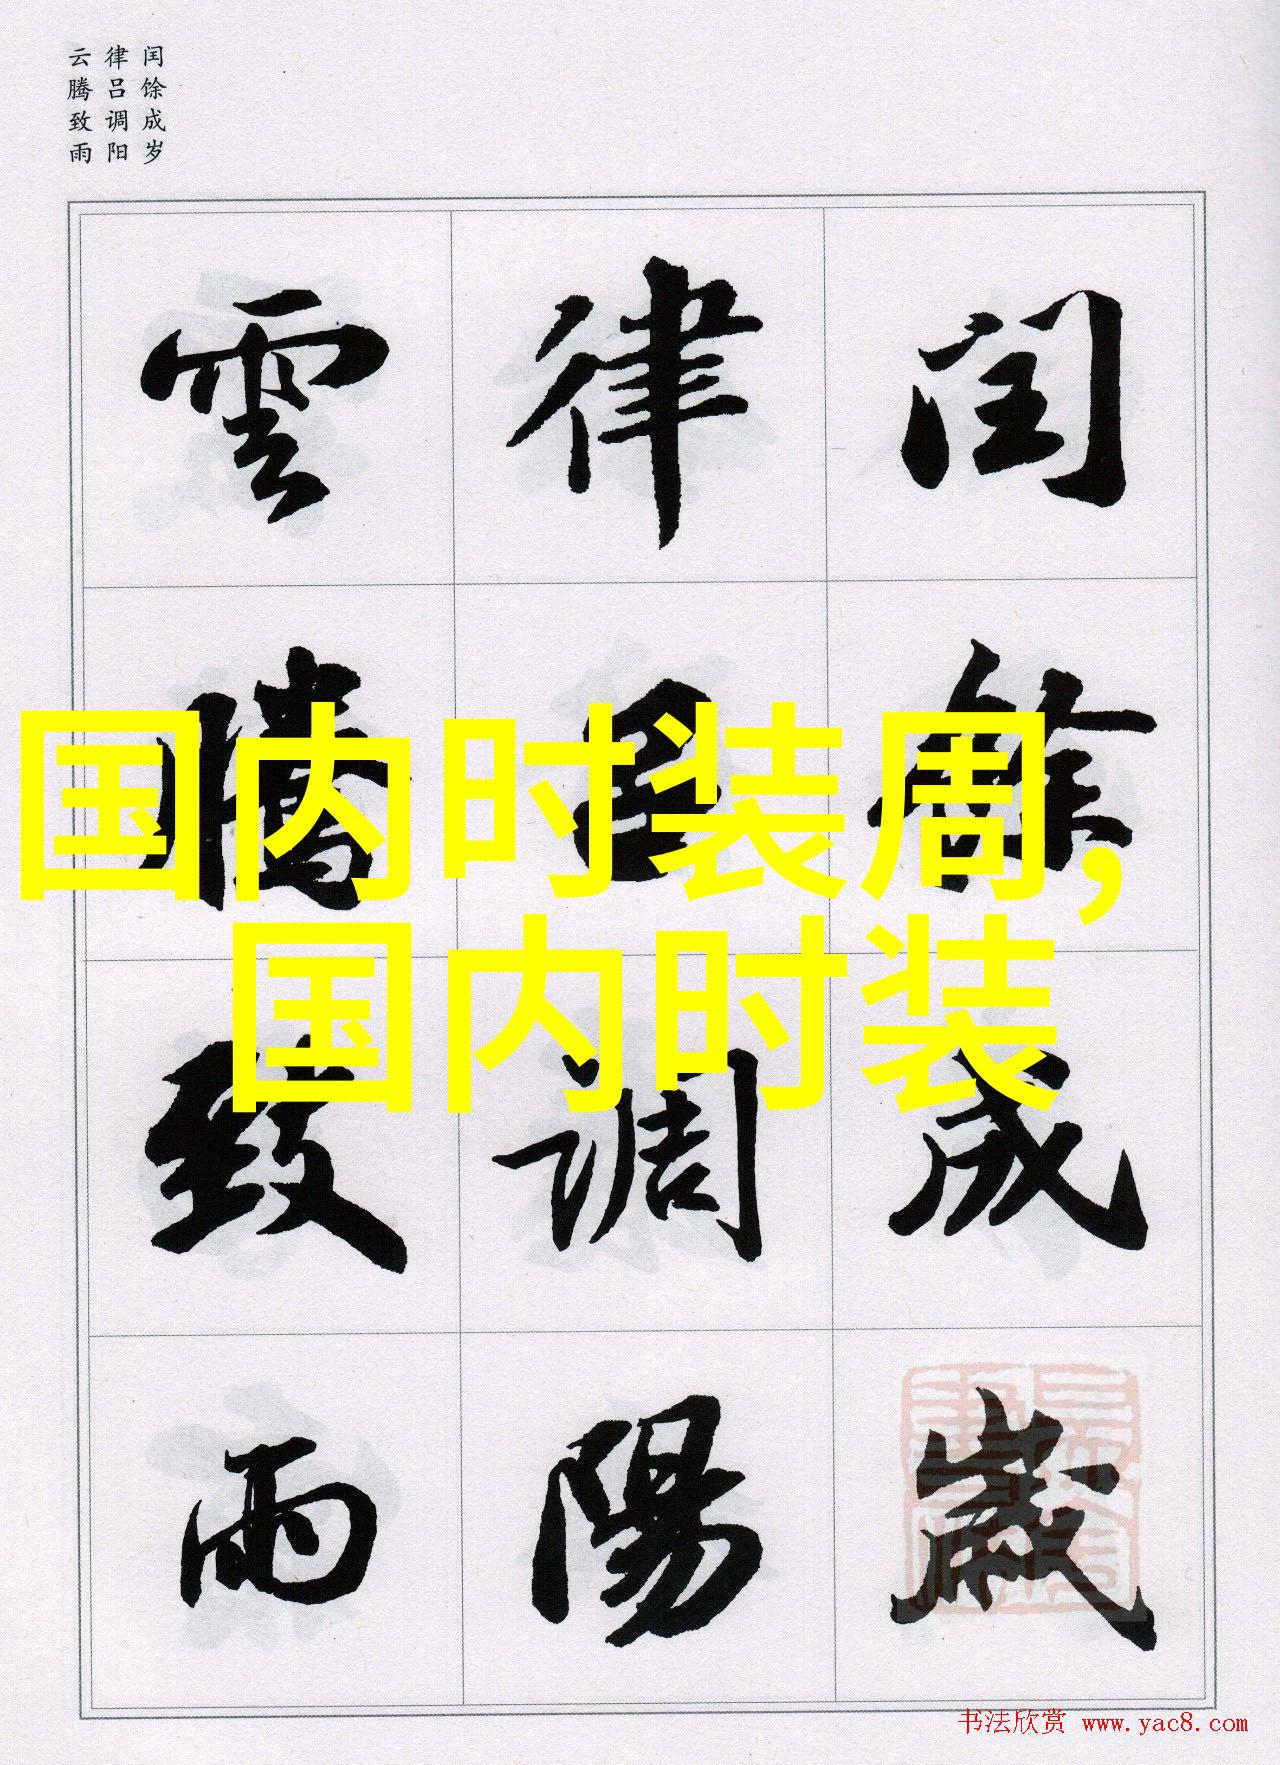 闰馀成岁
律吕调阳
云腾致雨
闰馀成歲
律吕調陽
雲騰致雨
国内时装周,
国内时装
书法欣赏 www.yac8.com